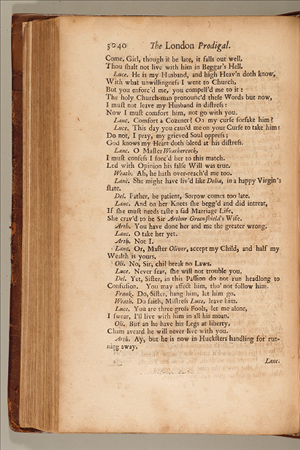 3040 The London Prodigal.
Come, Girl, though it be late, it falls out well,
Thou shalt not live with him in Beggar's Hell.
Luce. He is my Husband, and high Heav'n doth know,
With what unwillingness I went to Church,
But you enforc'd me, you compell'd me to it:
The holy Church-man pronounc'd these Words but now,
I must not leave my Husband in distress:
Now I must comfort him, not go with you.
Lanc. Comfort a Cozener? On my curse forsake him?
Luce. This day you caus'd me on your Curse to take him:
Do not, I pray, my grieved Soul oppress;
God knows my Heart doth bleed at his distress.
Lanc. O Master Weathercock,
I must confess I forc'd her to this match,
Led with Opinion his false Will was true.
Weath. Ah, he hath over-reach'd me too.
Lanc. She might have liv'd like Delia, in a happy Virgin's
state.
Del. Father, be patient, Sorrow comes too late.
Lanc. And on her Knees she begg'd and did intreat,
If she must needs taste a sad Marriage Life,
She crav'd to be Sir Arthur Greenshield's Wife.
Arth. You have done her and me the greater wrong.
Lanc. O take her yet.
Arth. Not I.
Lanc. Or, Master Oliver, accept my Child, and half my
Wealth is yours.
Oli. No, Sir, chil break no Laws.
Luce. Never fear, she will not trouble you.
Del. Yet, Sister, in this Passion do not run headlong to
Confusion. You may affect him, tho' not follow him.
Frank. Do, Sister, hang him, let him go.
Weath. Do faith, Mistress Luce, leave him.
Luce. You are three gross Fools, let me alone,
I swear, I'll live with him in all his moan.
Oli. But an he have his Legs at liberty,
Cham aveard he will never live with you.
Arth. Ay, but he is now in Hucksters handling for run-
ning away.
Lanc.